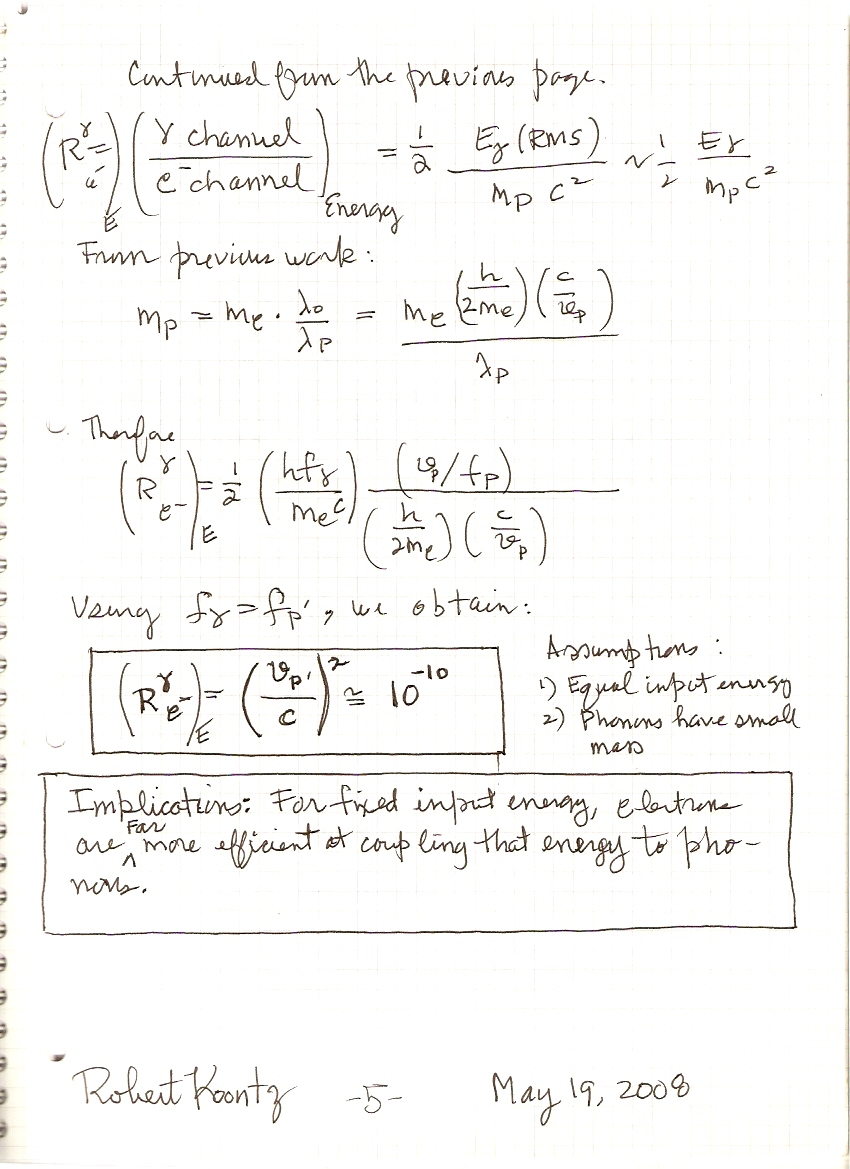 Continued from the previous page.
(R^γ_e-)_E = (γ channel / e⁻channel)_Energy = 1/2 E_γ(RMS) / m_p c² ~ 1/2 E_γ / m_p c²
From previous work:
m_p = m_e · λ_o/λ_p = m_e (h/2m_e)(c/v_p) / λ_p
Therefore
(R^γ_e-)_E = 1/2 (hf_γ / m_e c) (v_p/f_p) / (h/2m_e)(c/v_p)
Using f_γ = f_p', we obtain:
(R^γ_e-)_E = (v_p' / c)² ≅ 10^-10
Assumptions:
1) Equal input energy
2) Phonons have small
mass
Implications: For fixed input energy, electrons
are Far more efficient at coupling that energy to pho-
nons.
Robert Koontz -5- May 19, 2008